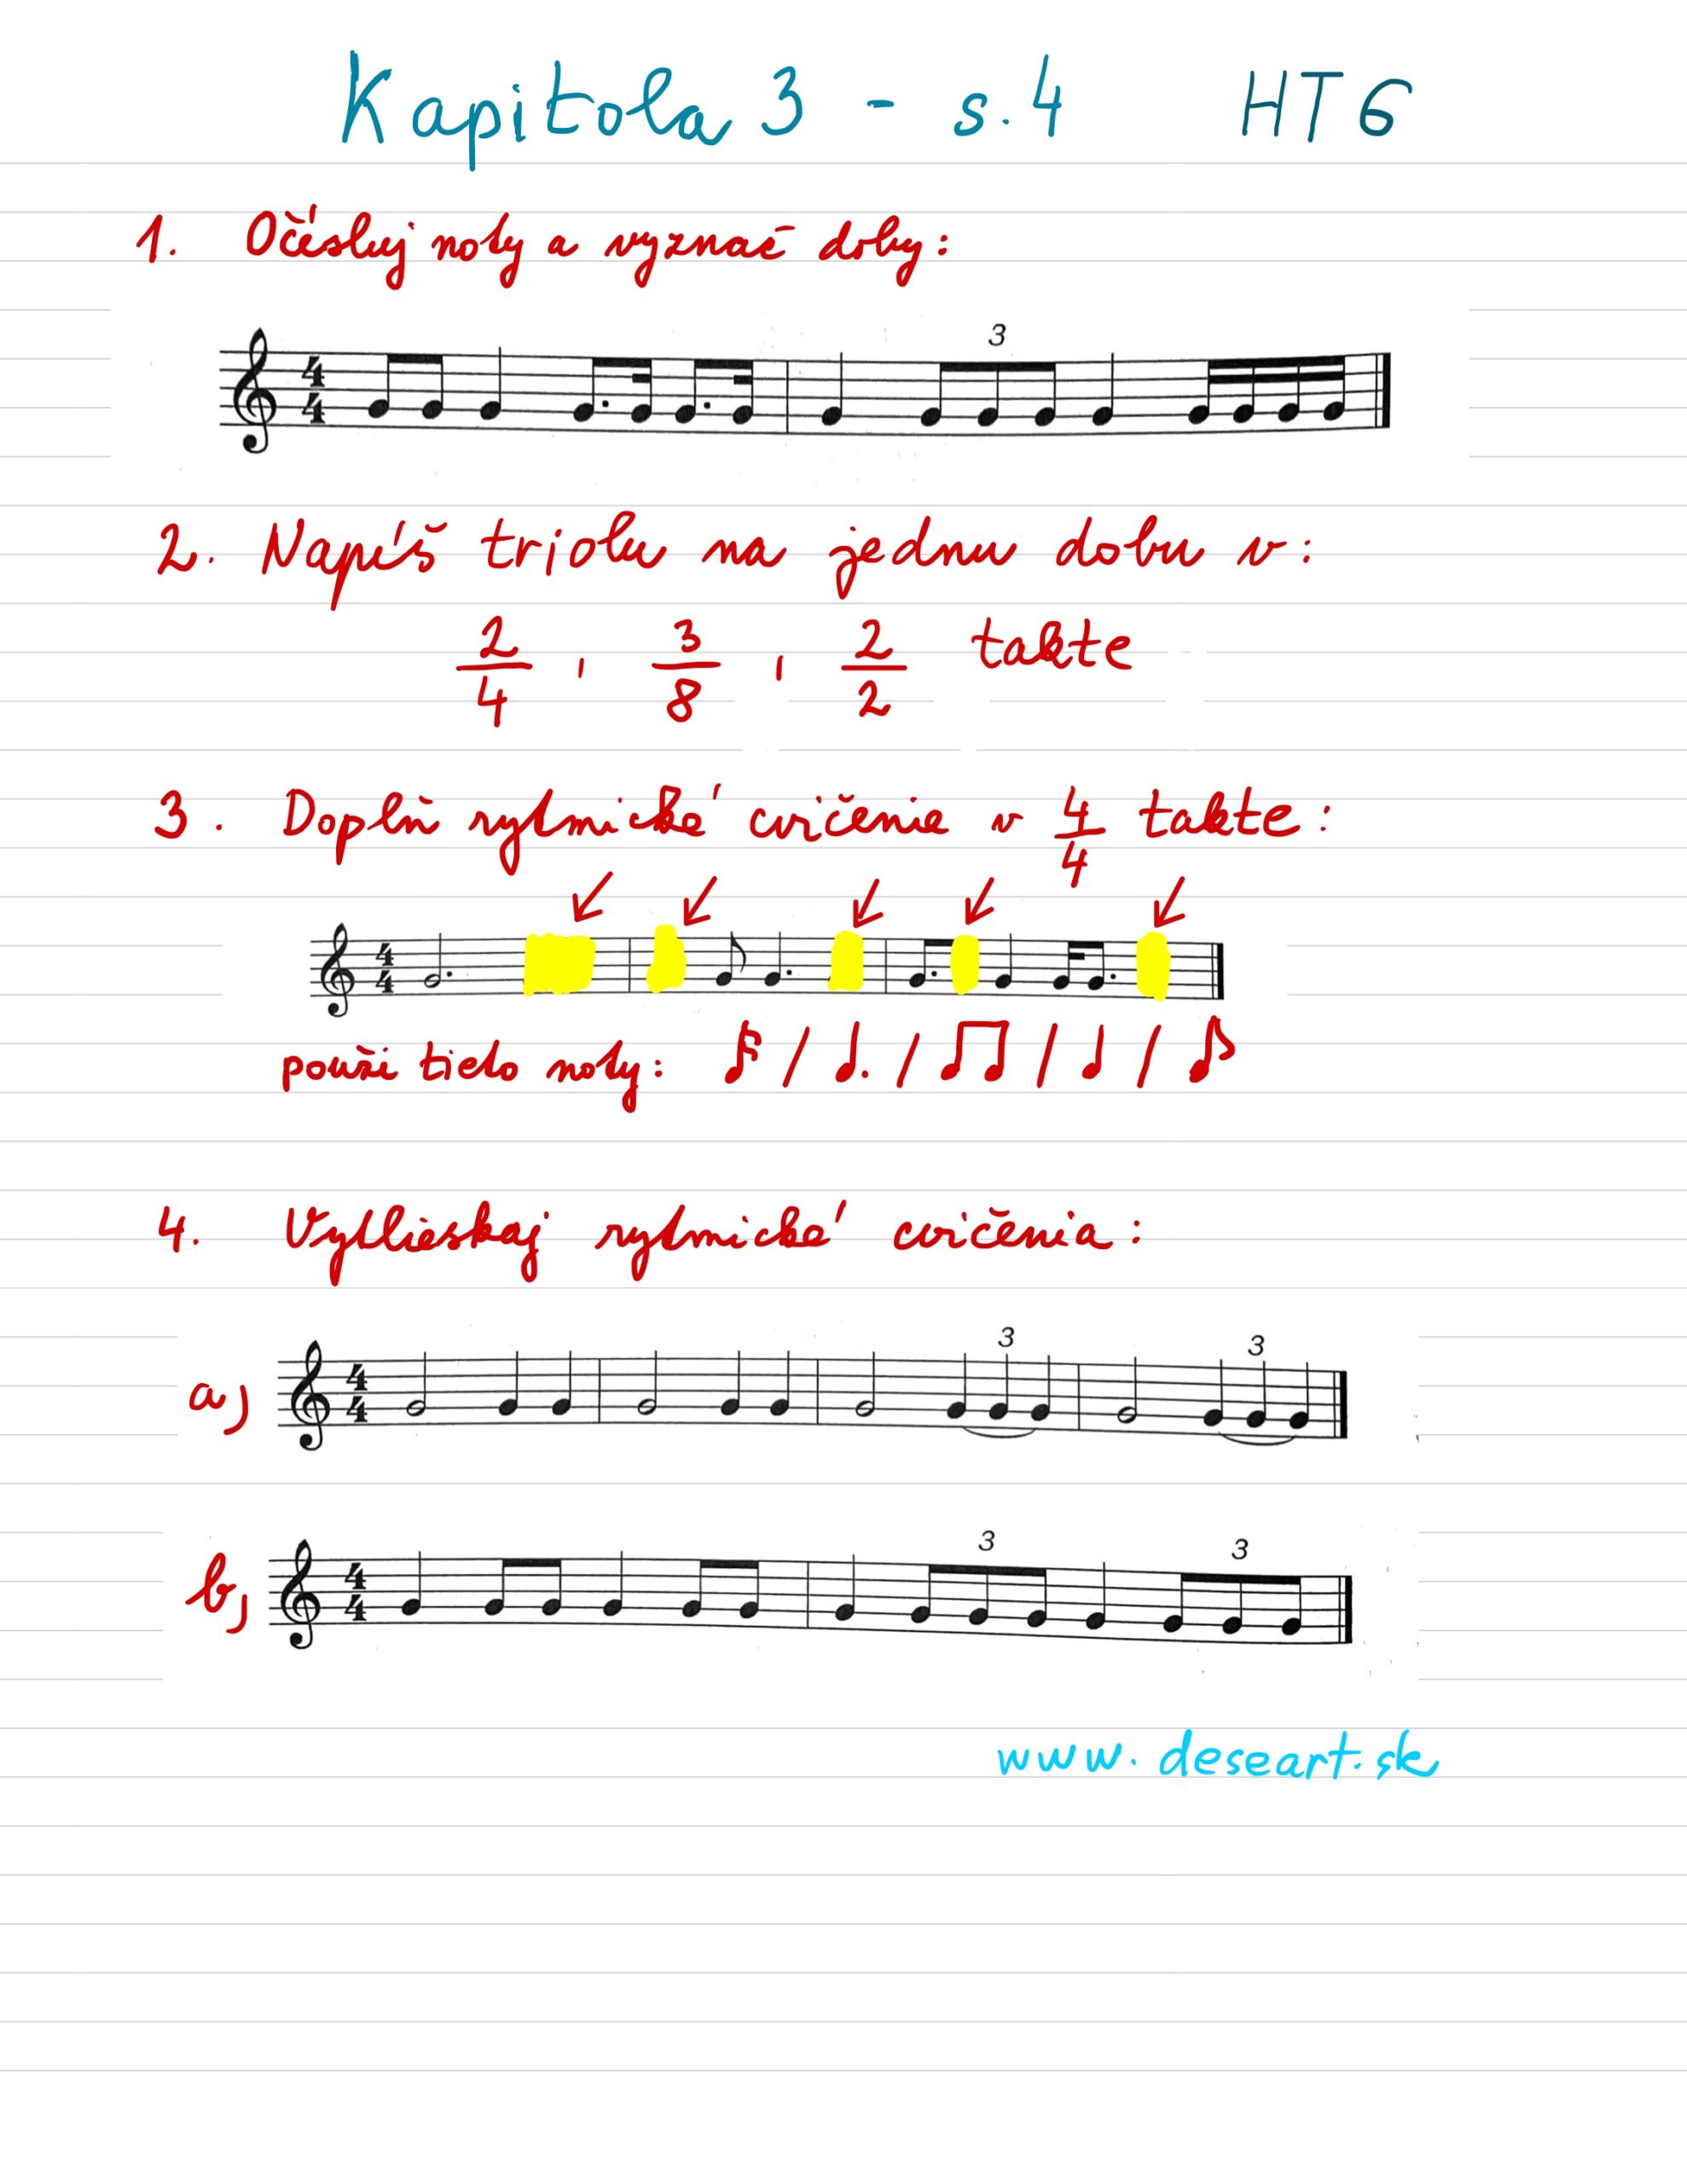 Kapitola 3 - s.4 HT6
1. Očísluj noty a vyznač doby:
4
4
3
2. Napíš triolu na jednu dobu v:
2/4, 3/8, 2/2 takte
3. Doplň rytmické cvičenie v 4/4 takte:
4
4
použi tieto noty: 𝅘𝅥𝅯 / 𝅘𝅥. / ♫ / 𝅘𝅥 / ♪
4. Vytlieskaj rytmické cvičenia:
a)
4
4
3 3
b)
4
4
3 3
www.deseart.sk